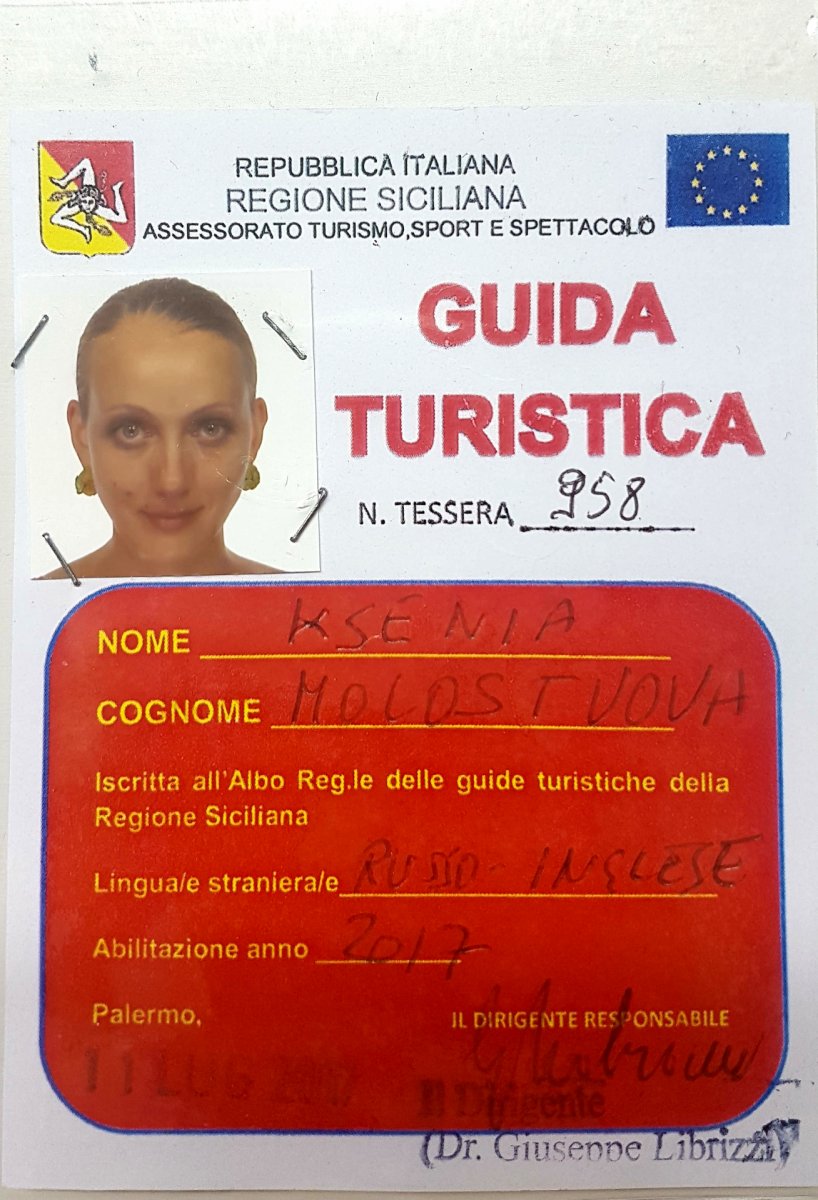 REPUBBLICA ITALIANA
REGIONE SICILIANA
ASSESSORATO TURISMO,SPORT E SPETTACOLO
GUIDA
TURISTICA
N. TESSERA 958
NOME KSENIA
COGNOME MOLOSTVOVA
Iscritta all'Albo Reg.le delle guide turistiche della
Regione Siciliana
Lingua/e straniera/e RUSSO - INGLESE
Abilitazione anno 2017
Palermo,
IL DIRIGENTE RESPONSABILE
11 LUG 2017
Il Dirigente
(Dr. Giuseppe Librizzi)